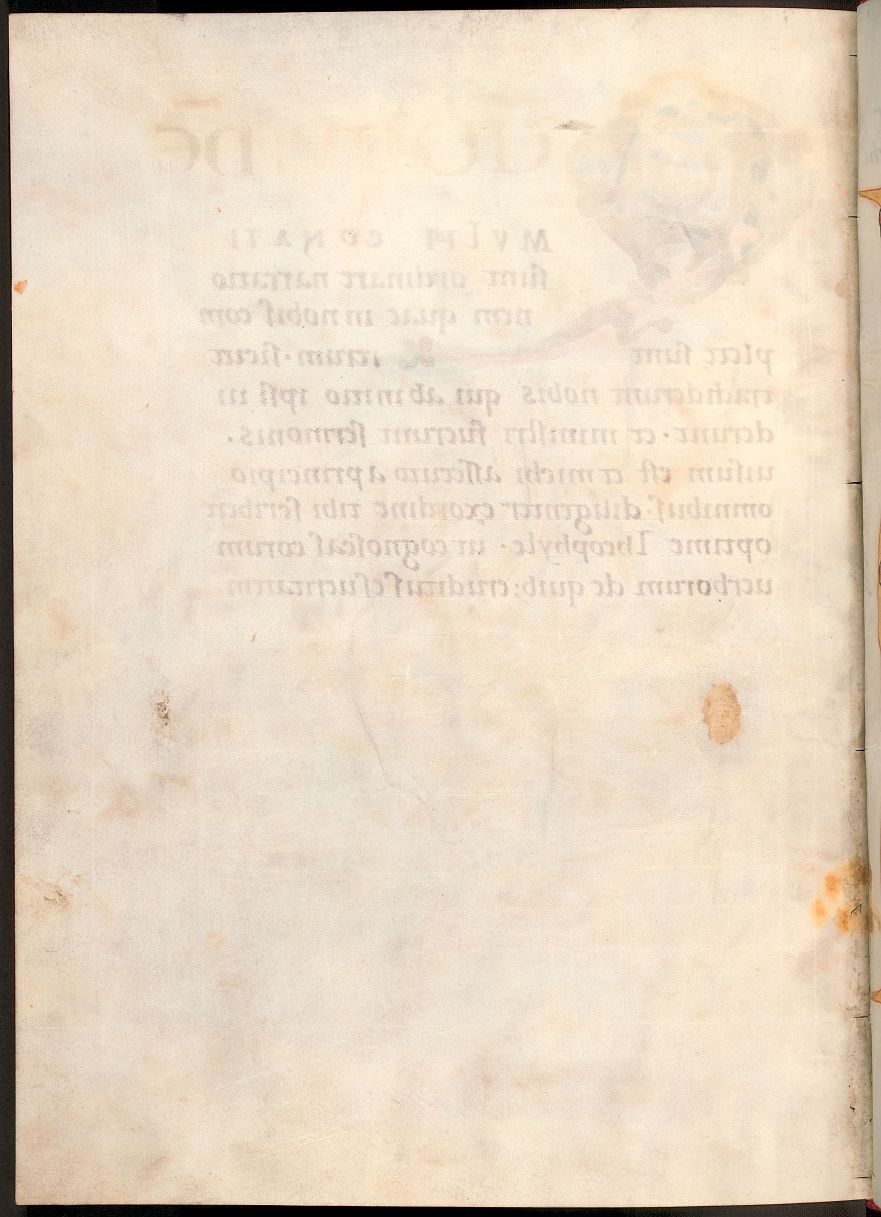 QUONIĀ QUIDĒ
MULTI CONATI
sunt ordinare narratio
nem quae in nobis com
pletę sunt rerum. sicut
tradiderunt nobis qui ab initio ipsi ui
derunt. et ministri fuerunt sermonis.
uisum est et michi assecuto a principio
omnibus. diligenter exordine tibi scribere
optime Theophyle. ut cognoscas eorum
uerborum de quib; eruditus es ueritatem